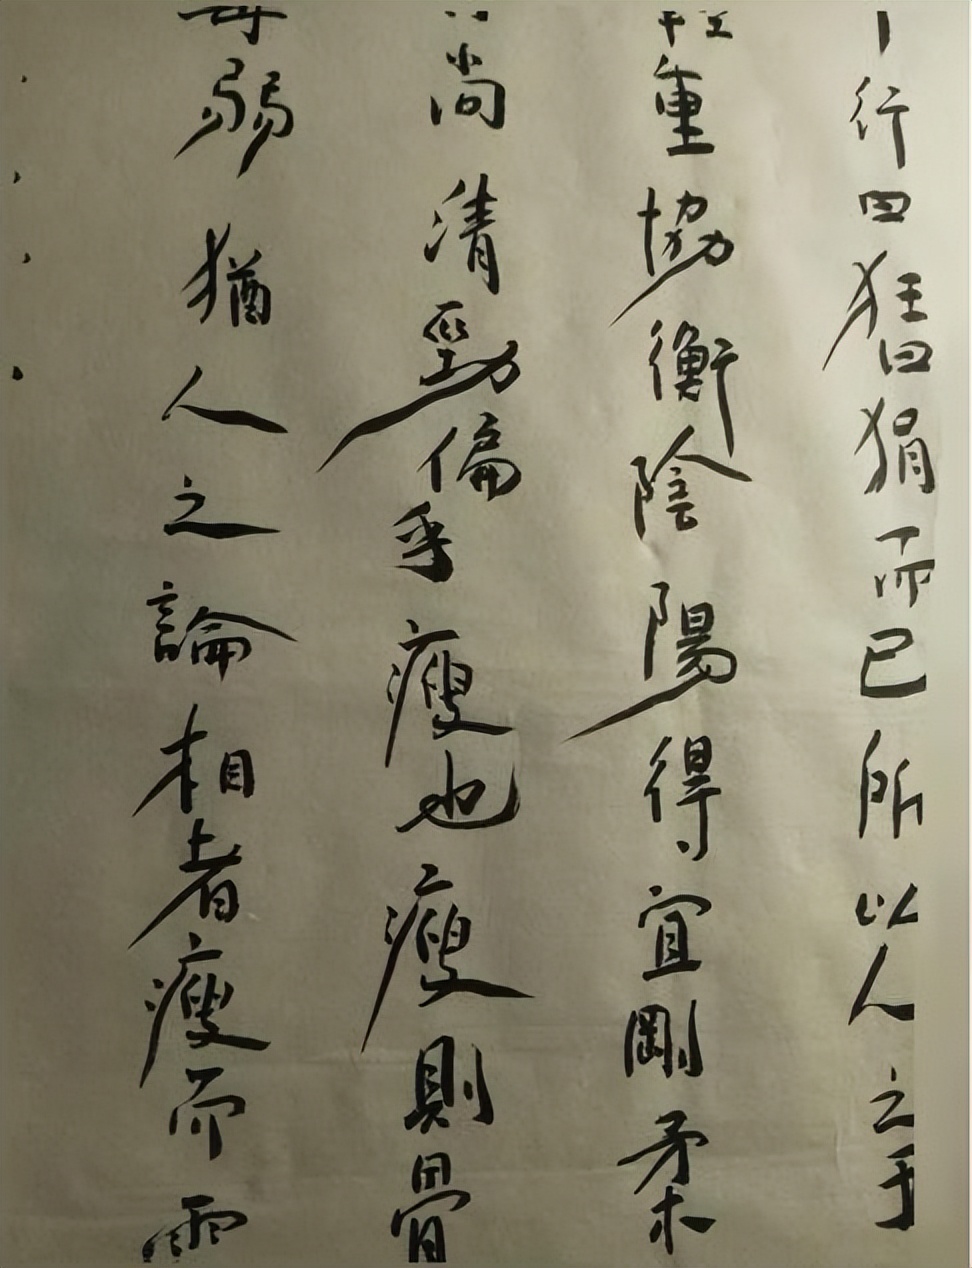 行曰狂曰狷而已所以人之于
重協衡陰陽得宜剛柔
尚清勁偏乎瘦也瘦則骨
弱猶人之論相者瘦而